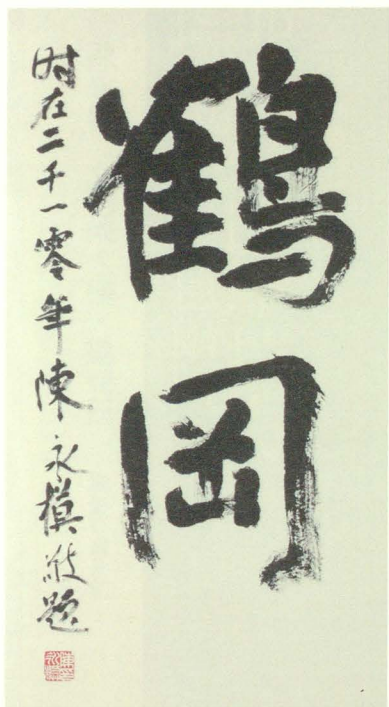 鶴岡
时在二千一零年陳永模敬題